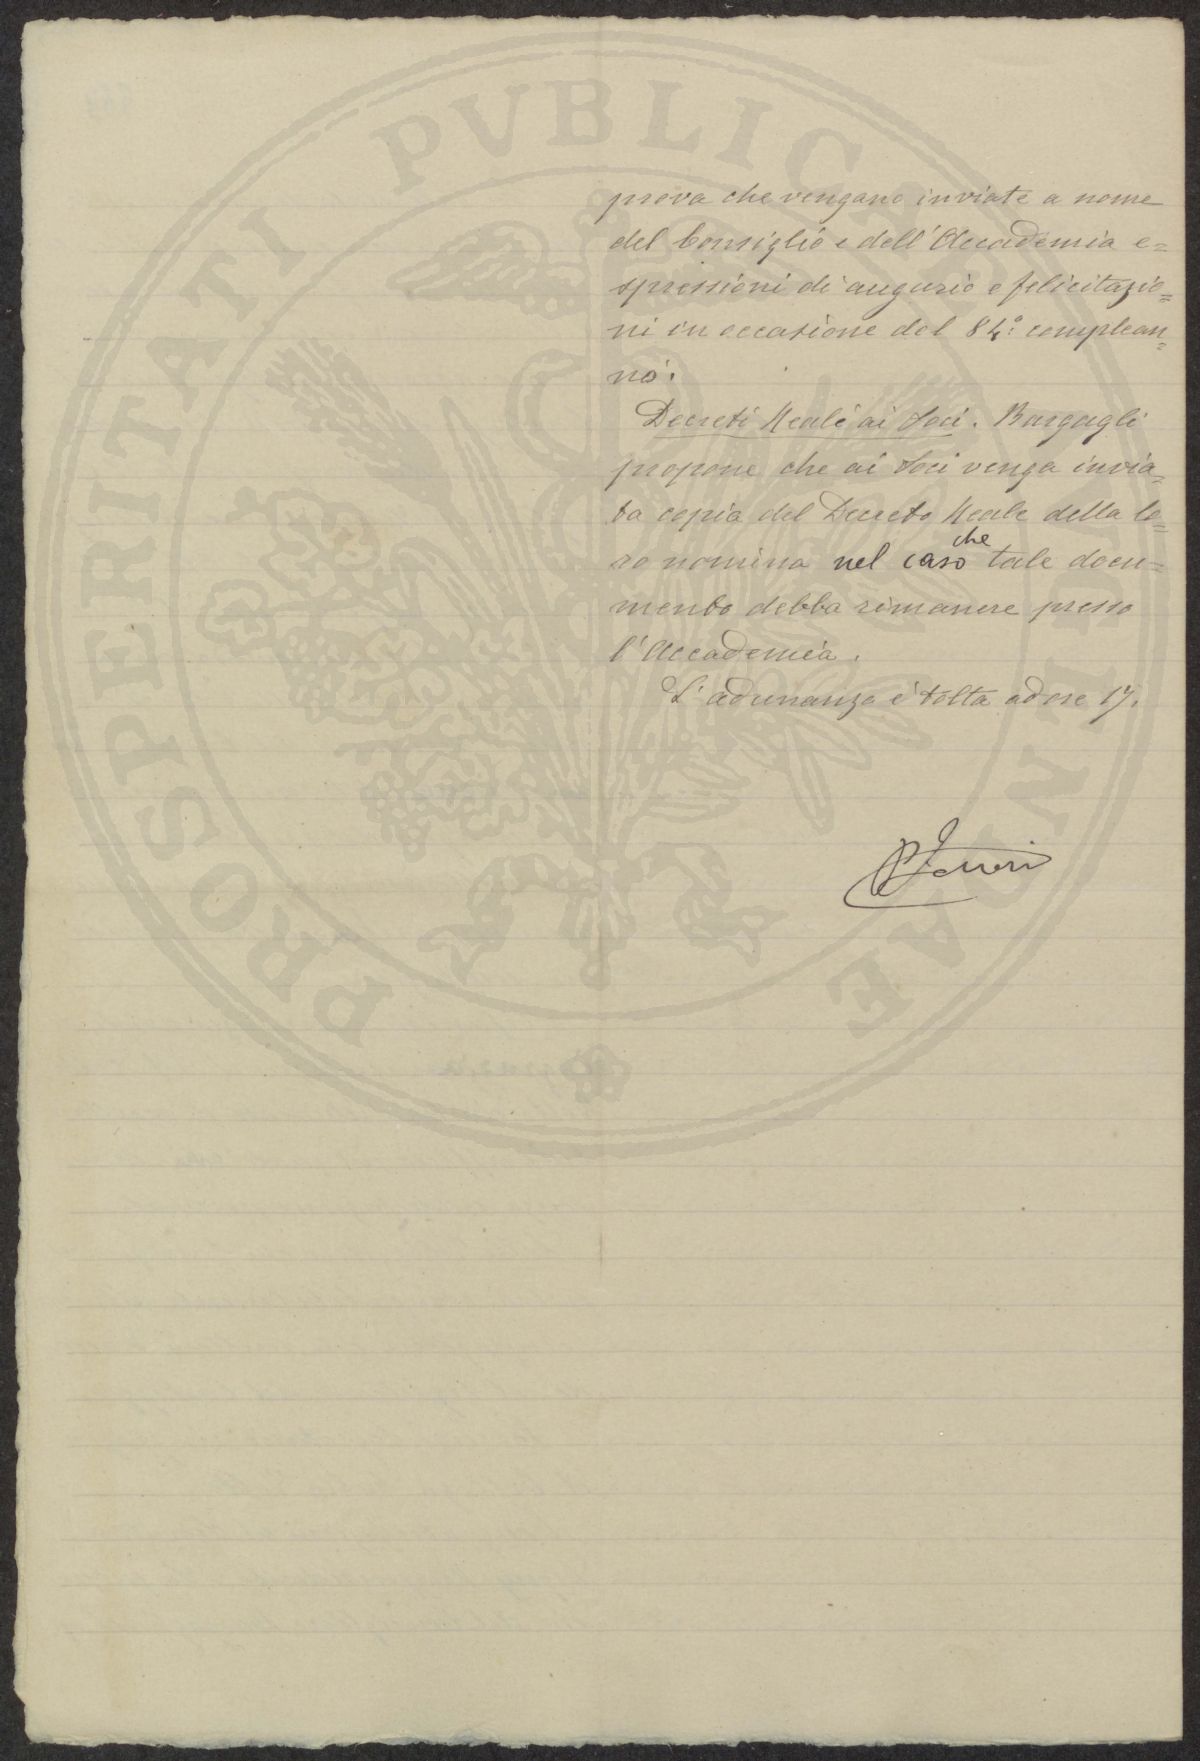 PROSPERITATI PVBLICAE AVGENDAE
prova che vengano inviate a nome
del Consiglio e dell'Accademia e=
spressioni di augurio e felicitazio=
ni in occasione del 84°: complean=
no.
Decreti Reali ai Soci. Bargagli
propone che ai Soci venga invia=
ta copia del Decreto Reale della lo=
ro nomina nel caso che tale docu=
mento debba rimanere presso
l'Accademia.
L'adunanza è tolta ad ore 17.